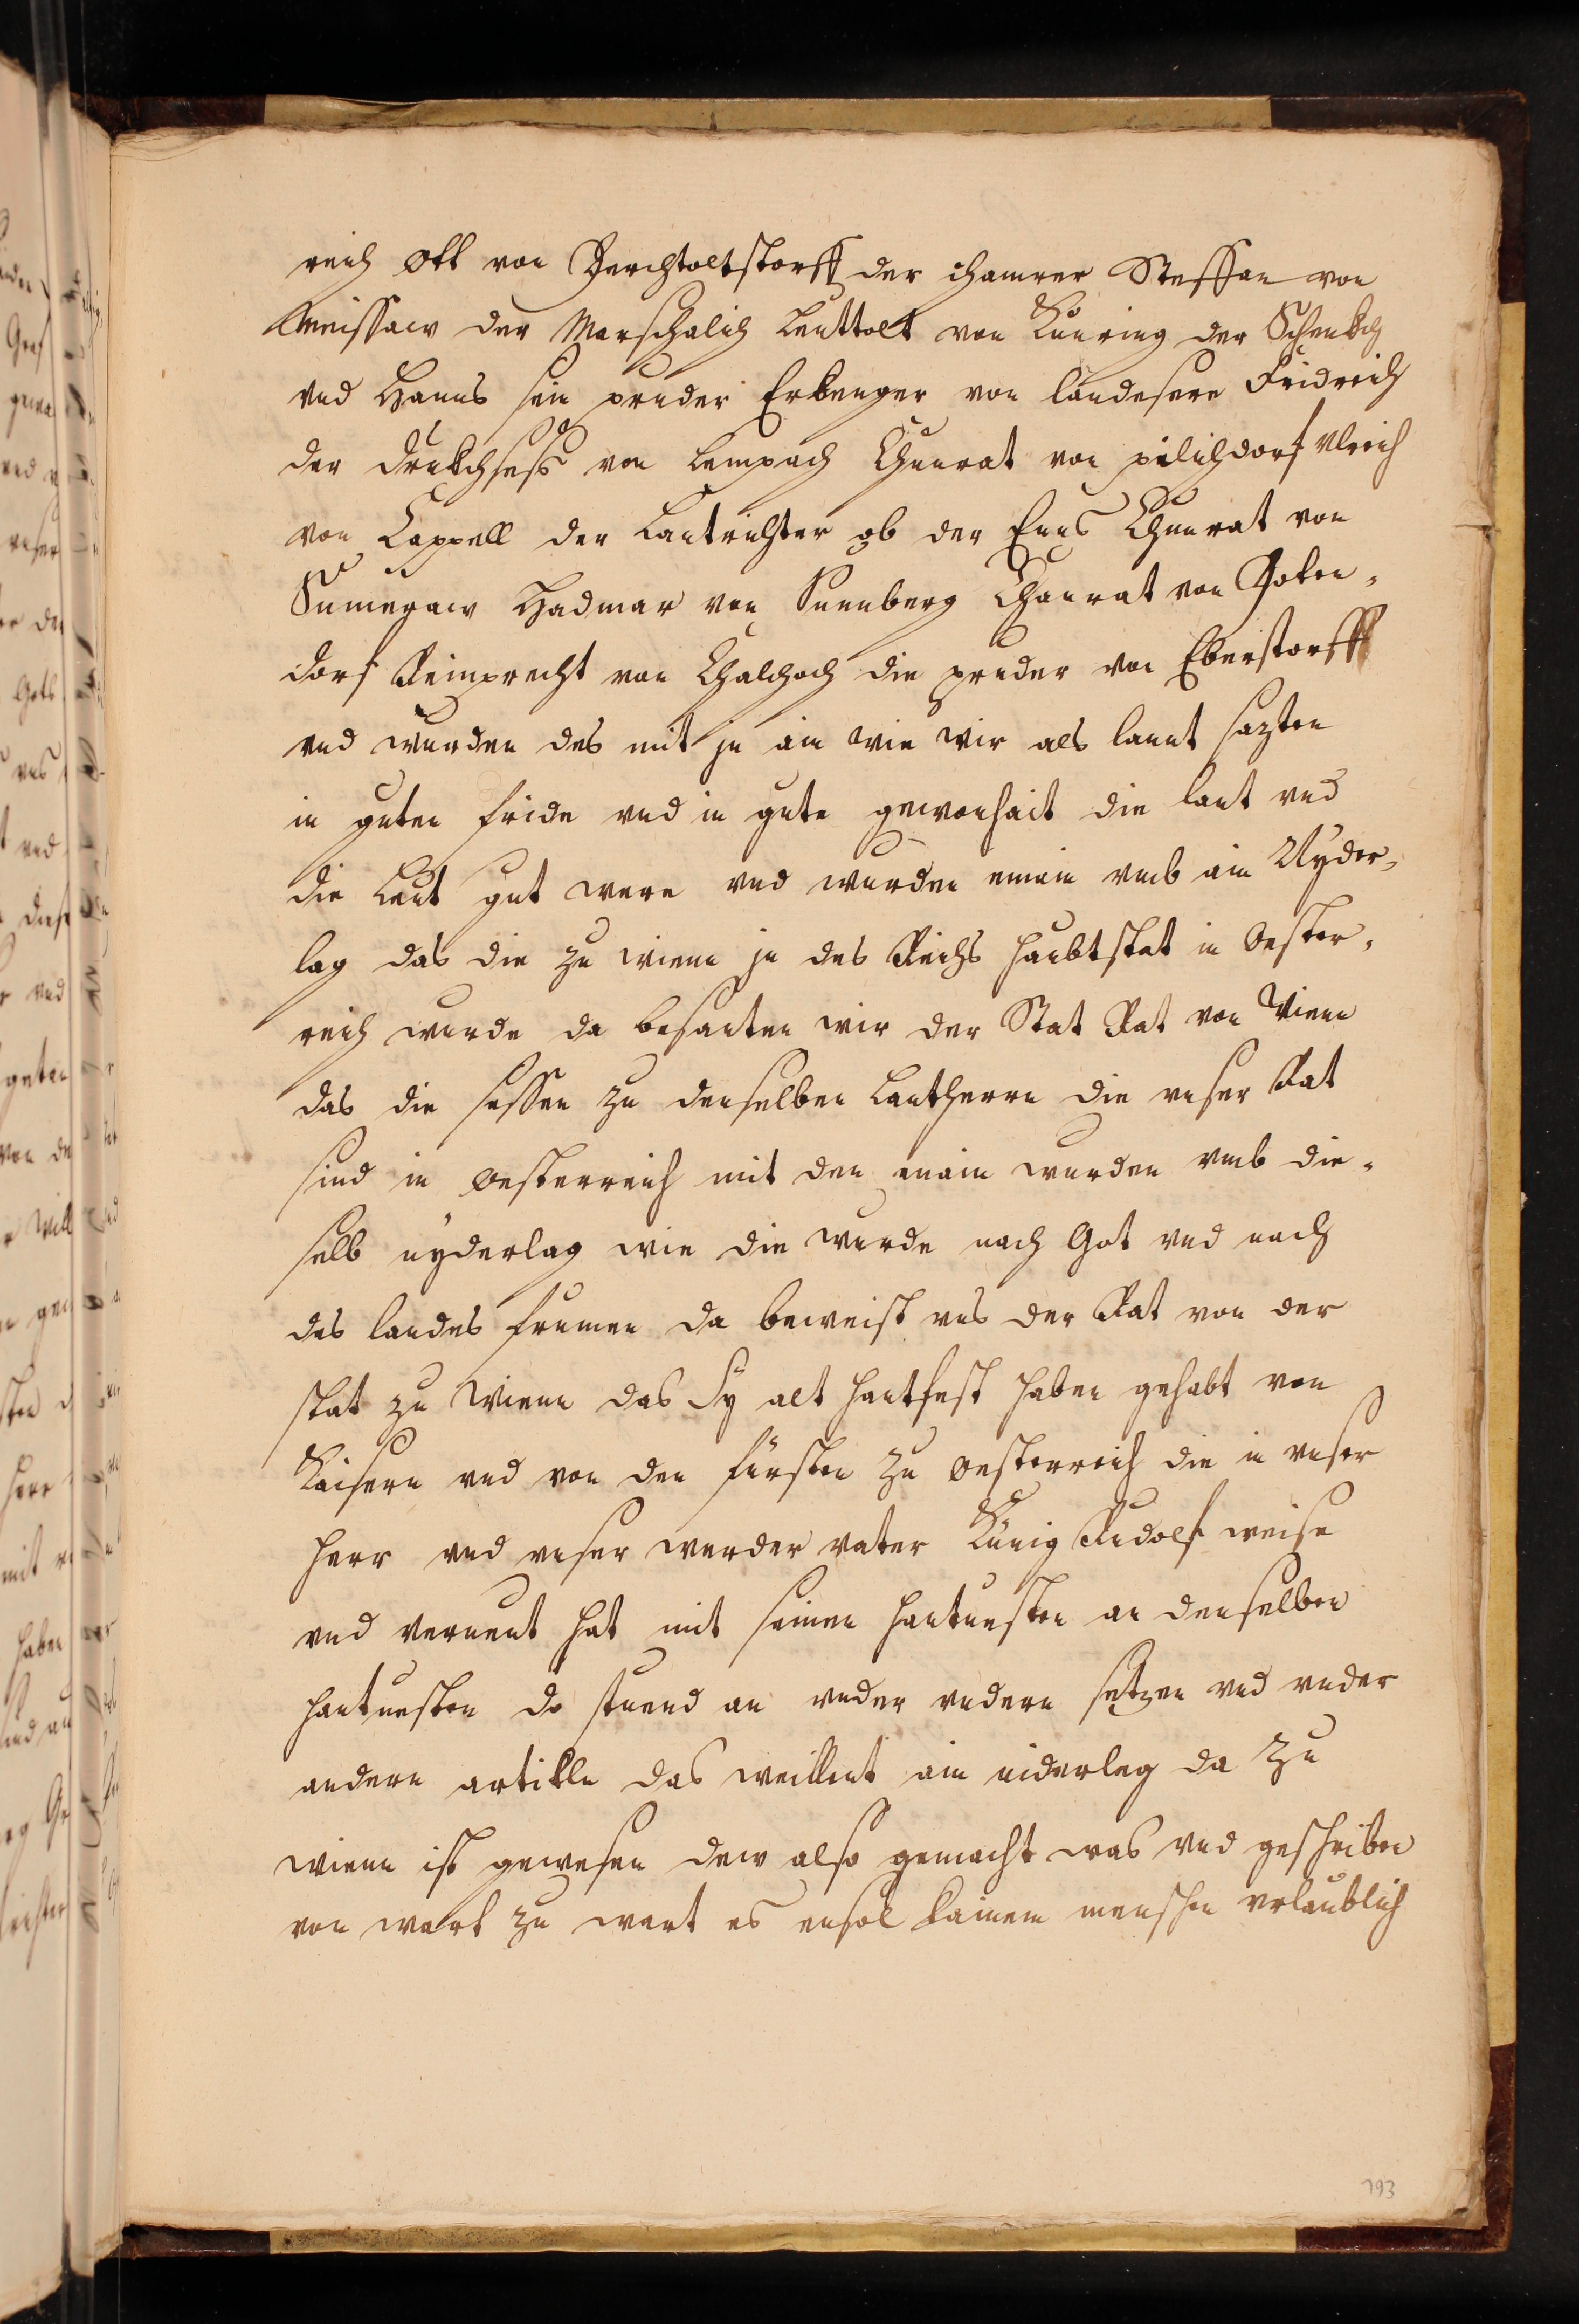 reich Ott von Berchtoltstorff der chamrer Steffan von
Meissaw der Marschalich Leuttolt von Kunring der Schenkch
vnd Hanns sein pruder Erkenger von landesere Fridreich
der drukchseß von Lempach Chunrat von pilichdorf Vlreich
von Cappell der Lantrichter ob der Enns Chunrat von
Sumeraw Hadmar von Sunnberg Chunrat von Poten-
dorf Reimprecht von Chalchoch die pruder von Eberstorff
vnd wurden des mit jn ain wie wir als lannt sazten
in guten fride vnd in gute gewonhait die lant vnd
die Leut gut were vnd wurden enain vmb ain Nyder-
lag das die zu wienn jn des Reichs haubtstat in Oester-
reich wurde da besanten wir der Stat Rat von Wienn
das die sessen zu denselben Lantherrn die vnser Rat
sind in Oesterreich mit den enain wurden vmb die-
selb nyderlag wie die wurde nach Got vnd nach
des landes frumen da beweist vns der Rat von der
stat zu Wienn das Sy alt hantfest haben gehabt von
Kaisern vnd von den fürsten zu Oesterreich die in vnser
herr vnd vnser werder vater Künig Rudolf weise
vnd vernewt hat mit seinen hantuesten an denselben
hantuesten do stuend an vnder andern setzen vnd vnder
andern artikln das weillent ain niderlag da zu
wienn ist gewesen dew also gemacht was vnd geschriben
von wart zu wart es ensol kainem menschen vrlaublich
193